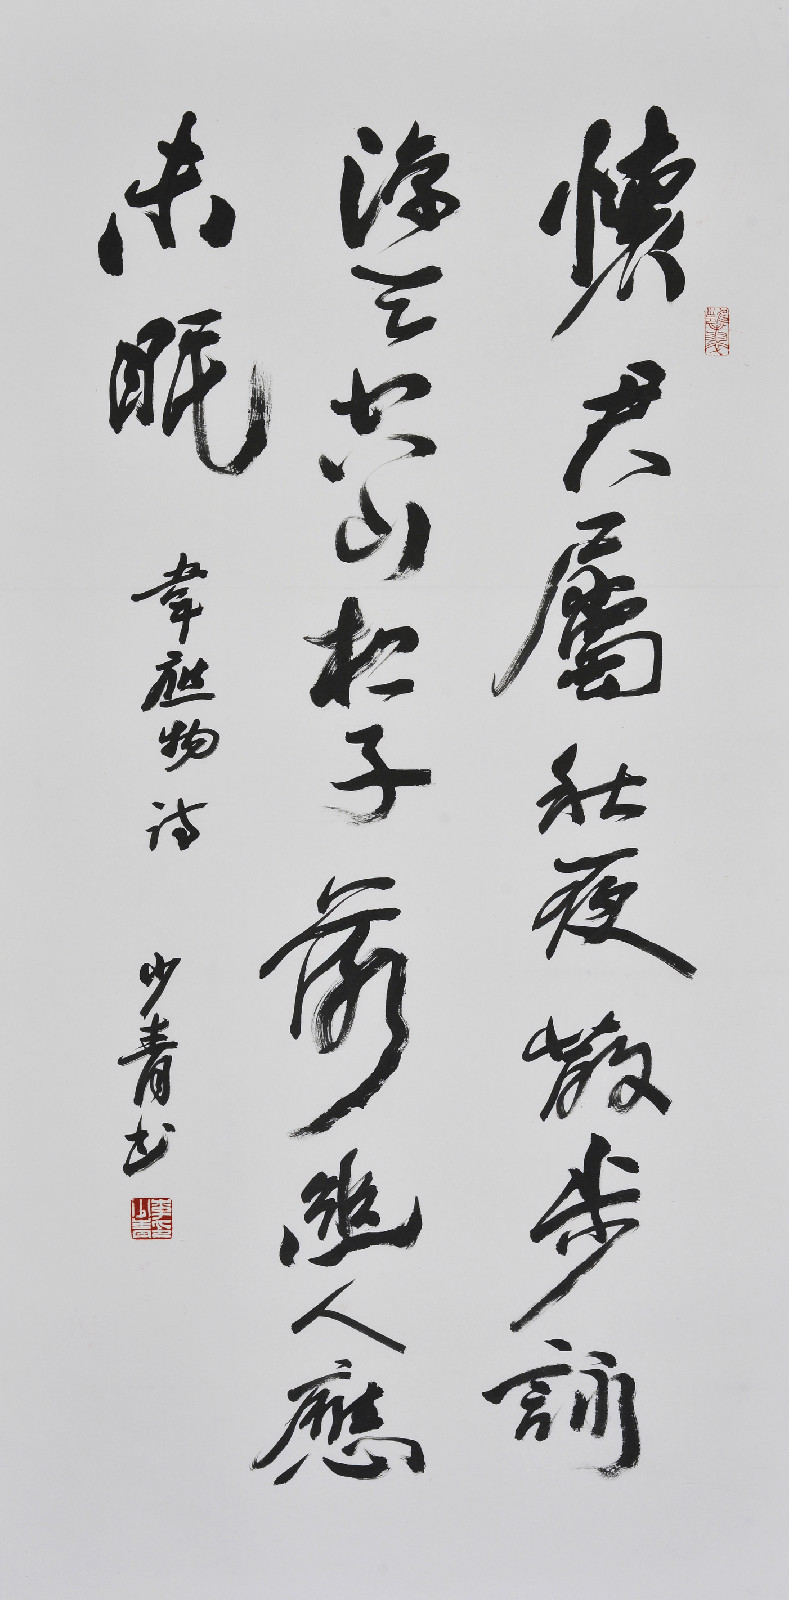 懷君屬秋夜散步詠
涼天空山松子落幽人應
未眠
韋應物詩 少青书